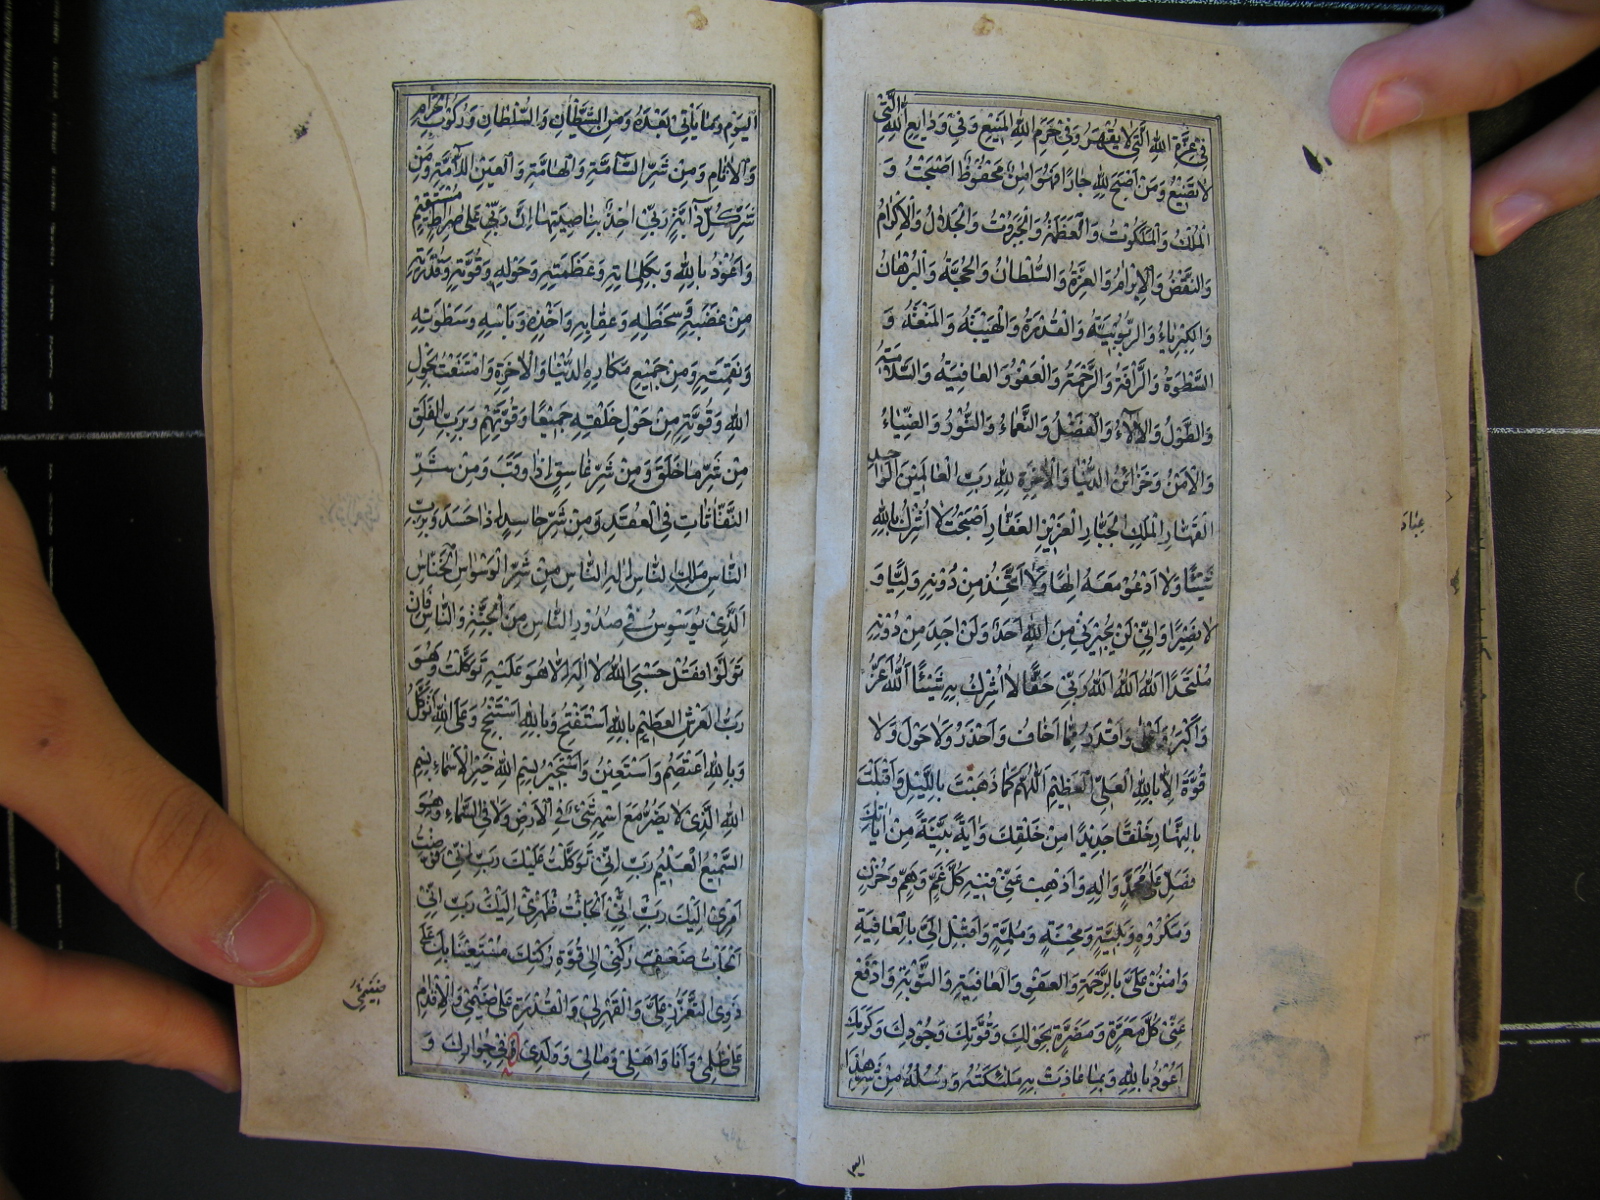 فِي عِزَّةِ اللهِ الَّتِي لَا تُقْهَرُ وَفِي حَرَمِ اللهِ الْمَنِيعِ وَفِي وَدَايِعِ اللهِ الَّتِي
لَا تَضِيعُ وَمَنْ اَصْبَحَ لِلهِ جَارًا فَهُوَ اٰمِنٌ مَحْفُوظٌ اَصْبَحْتُ وَ
الْمُلْكُ وَالْمَلَكُوتُ وَالْعَظَمَةُ وَالْجَبَرُوتُ وَالْجَلَالُ وَالْاِكْرَامُ
وَالنَّقْضُ وَالْاِبْرَامُ وَالْعِزَّةُ وَالسُّلْطَانُ وَالْحُجَّةُ وَالْبُرْهَانُ
وَالْكِبْرِيَاءُ وَالرُّبُوبِيَّةُ وَالْقُدْرَةُ وَالْهَيْبَةُ وَالْمَنَعَةُ وَ
السَّطْوَةُ وَالرَّأْفَةُ وَالرَّحْمَةُ وَالْعَفْوُ وَالْعَافِيَةُ وَالسَّلَامَةُ
وَالطَّوْلُ وَالْاٰلَاءُ وَالْفَضْلُ وَالنَّعْمَاءُ وَالنُّورُ وَالضِّيَاءُ
وَالْاَمْنُ وَخَزَائِنُ الدُّنْيَا وَالْاٰخِرَةِ لِلهِ رَبِّ الْعَالَمِينَ الْوَاحِدِ
الْقَهَّارِ الْمَلِكِ الْجَبَّارِ الْعَزِيزِ الْغَفَّارِ اَصْبَحْتُ لَا اُشْرِكُ بِاللهِ
شَيْئًا وَلَا اَدْعُوْ مَعَهُ اِلٰهًا وَلَا اَتَّخِذُ مِنْ دُوْنِهِ وَلِيًّا وَ
لَا نَصِيرًا وَاِنِّي لَنْ يُجِيرَنِي مِنَ اللهِ اَحَدٌ وَلَنْ اَجِدَ مِنْ دُوْنِهِ
مُلْتَحَدًا اَللهُ اَللهُ اَللهُ رَبِّي حَقًّا لَا اُشْرِكُ بِهِ شَيْئًا اَللهُ اَعَزُّ
وَاَكْبَرُ وَاَعْلٰى وَاَقْدَرُ مِمَّا اَخَافُ وَاَحْذَرُ وَلَا حَوْلَ وَلَا
قُوَّةَ اِلَّا بِاللهِ الْعَلِيِّ الْعَظِيمِ اَللّٰهُمَّ كَمَا ذَهَبْتَ بِاللَّيْلِ وَاَقْبَلْتَ
بِالنَّهَارِ خَلْقًا جَدِيدًا مِنْ خَلْقِكَ وَاٰيَةً بَيِّنَةً مِنْ اٰيَاتِكَ
فَصَلِّ عَلٰى مُحَمَّدٍ وَاٰلِهِ وَاَذْهِبْ عَنِّي فِيهِ كُلَّ غَمٍّ وَهَمٍّ وَحُزْنٍ
وَمَكْرُوْهٍ وَبَلِيَّةٍ وَمِحْنَةٍ وَمُلِمَّةٍ وَاَقْبِلْ اِلَيَّ بِالْعَافِيَةِ
وَامْنُنْ عَلَيَّ بِالرَّحْمَةِ وَالْعَفْوِ وَالْعَافِيَةِ وَالتَّوْبَةِ وَادْفَعْ
عَنِّي كُلَّ مَعَرَّةٍ وَمَضَرَّةٍ بِحَوْلِكَ وَقُوَّتِكَ وَجُودِكَ وَكَرَمِكَ
اَعُوْذُ بِاللهِ وَبِمَا عَاذَتْ بِهِ مَلٰئِكَتُهُ وَرُسُلُهُ مِنْ شَرِّ هٰذَا
الي
الْيَوْمِ وَمَا يَأْتِي بَعْدَهُ وَمِنَ الشَّيْطَانِ وَالسُّلْطَانِ وَرُكُوْبِ الْحَرَامِ
وَالْاٰثَامِ وَمِنْ شَرِّ السَّامَّةِ وَالْهَامَّةِ وَالْعَيْنِ اللَّامَّةِ وَمِنْ
شَرِّ كُلِّ دَابَّةٍ رَبِّي اٰخِذٌ بِنَاصِيَتِهَا اِنَّ رَبِّي عَلٰى صِرَاطٍ مُسْتَقِيمٍ
وَاَعُوْذُ بِاللهِ وَبِكَلِمَاتِهِ وَعَظَمَتِهِ وَحَوْلِهِ وَقُوَّتِهِ وَقُدْرَتِهِ
مِنْ غَضَبِهِ وَسَخَطِهِ وَعِقَابِهِ وَاَخْذِهِ وَبَاْسِهِ وَسَطْوَتِهِ
وَنَقِمَتِهِ وَمِنْ جَمِيعِ مَكَارِهِ الدُّنْيَا وَالْاٰخِرَةِ وَامْتَنَعْتُ بِحَوْلِ
اللهِ وَقُوَّتِهِ مِنْ حَوْلِ خَلْقِهِ جَمِيعًا وَقُوَّتِهِمْ وَبِرَبِّ الْفَلَقِ
مِنْ شَرِّ مَا خَلَقَ وَمِنْ شَرِّ غَاسِقٍ اِذَا وَقَبَ وَمِنْ شَرِّ
النَّفَّاثَاتِ فِي الْعُقَدِ وَمِنْ شَرِّ حَاسِدٍ اِذَا حَسَدَ وَبِرَبِّ
النَّاسِ مَلِكِ النَّاسِ اِلٰهِ النَّاسِ مِنْ شَرِّ الْوَسْوَاسِ الْخَنَّاسِ
اَلَّذِي يُوَسْوِسُ فِي صُدُوْرِ النَّاسِ مِنَ الْجِنَّةِ وَالنَّاسِ فَاِنْ
تَوَلَّوْا فَقُلْ حَسْبِيَ اللهُ لَا اِلٰهَ اِلَّا هُوَ عَلَيْهِ تَوَكَّلْتُ وَهُوَ
رَبُّ الْعَرْشِ الْعَظِيمِ بِاللهِ اَسْتَفْتِحُ وَبِاللهِ اَسْتَنْجِحُ وَعَلَى اللهِ اَتَوَكَّلُ
وَبِاللهِ اَعْتَصِمُ وَاَسْتَعِينُ وَاَسْتَجِيرُ بِسْمِ اللهِ خَيْرِ الْاَسْمَاءِ بِسْمِ
اللهِ الَّذِي لَا يَضُرُّ مَعَ اسْمِهِ شَيْءٌ فِي الْاَرْضِ وَلَا فِي السَّمَاءِ وَهُوَ
السَّمِيعُ الْعَلِيمُ رَبِّ اِنِّي تَوَكَّلْتُ عَلَيْكَ رَبِّ اِنِّي فَوَّضْتُ
اَمْرِي اِلَيْكَ رَبِّ اِنِّي اَلْجَاْتُ ظَهْرِي اِلَيْكَ رَبِّ اِنِّي
اَلْجَاْتُ ضَعْفَ رُكْنِي اِلٰى قُوَّةِ رُكْنِكَ مُسْتَعِينًا بِكَ عَلٰى
ذَوِي التَّعَزُّزِ عَلَيَّ وَالْقَهْرِ لِي وَالْقُدْرَةِ عَلٰى ضَيْمِي وَالْاِقْدَامِ
عَلٰى ظُلْمِي وَاَنَا وَاَهْلِي وَمَالِي وَوَلَدِي فِي جِوَارِكَ وَ